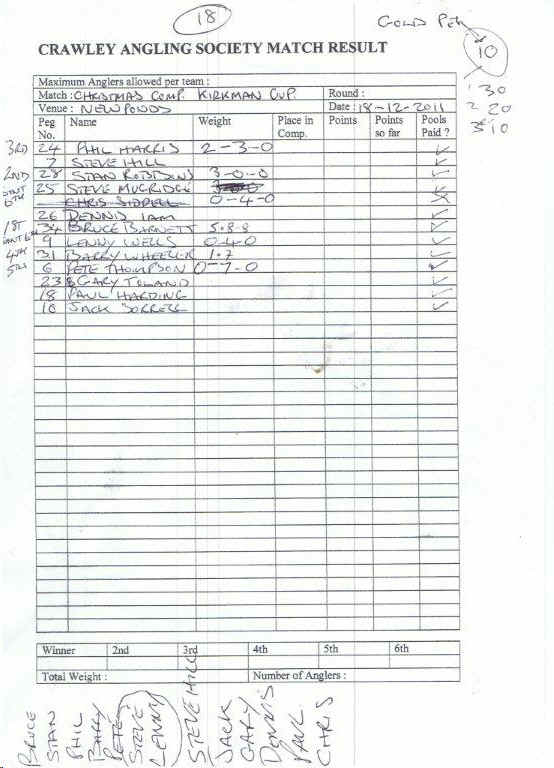 18
GOLD PEG
10
CRAWLEY ANGLING SOCIETY MATCH RESULT
Maximum Anglers allowed per team :
Match : CHRISTMAS COMP. KIRKMAN CUP. Round :
Venue : NEW PONDS Date : 18-12-2011
1 30
2 20
3 10
Peg No. Name Weight Place in Comp. Points Points so far Pools Paid ?
3RD 24 PHIL HARRIS 2-3-0 ✓
7 STEVE HILL ✓
2ND 28 STAN ROBBINS 3-0-0 ✓
JOINT 6TH 25 STEVE MUGRIDGE 0-4-0 ✓
CHRIS SIDDELL X
26 DENNIS IAM ✓
1ST 34 BRUCE BARNETT 5-8-8 ✓
JOINT 6TH 9 LENNY WELLS 0-4-0 ✓
4TH 31 BARRY WHEELER 1-7 ✓
5TH 6 PETE THOMPSON 0-7-0 ✓
23 GARY TOLAND ✓
18 PAUL HARDING ✓
10 JACK SORRELL ✓
Winner 2nd 3rd 4th 5th 6th
Total Weight : Number of Anglers :
BRUCE
STAN
PHIL
BARRY
PETE
STEVE
LENNY
STEVE HILL
JACK
GARY
DENNIS
PAUL
CHRIS